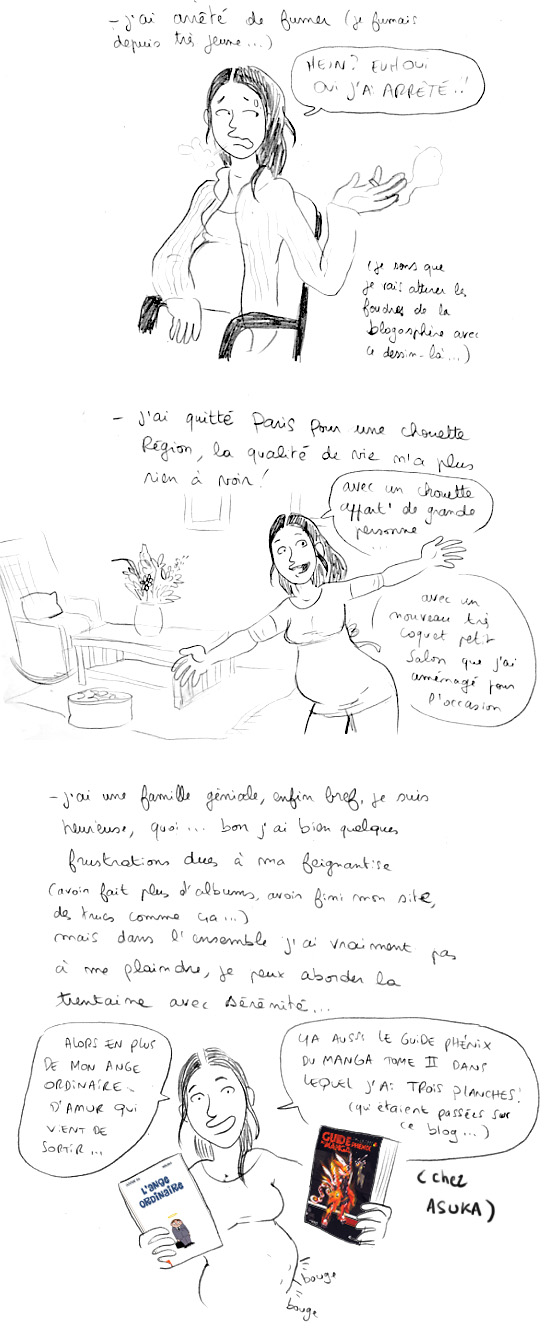 - j'ai arrêté de fumer (je fumais
depuis très jeune...)
HEIN? EUH OUI
OUI J'AI ARRÊTÉ..!
(je sens que
je vais attirer les
foudres de la
blogosphère avec
ce dessin-là...)
- j'ai quitté Paris pour une chouette
Région, la qualité de vie n'a plus
rien à voir!
avec un chouette
appart' de grande
personne
...
avec un
nouveau très
coquet petit
salon que j'ai
aménagé pour
l'occasion
- j'ai une famille géniale, enfin bref, je suis
heureuse, quoi... bon j'ai bien quelques
frustrations dues à ma feignantise
(avoir fait plus d'albums, avoir fini mon site,
des trucs comme ça...)
mais dans l'ensemble j'ai vraiment pas
à me plaindre, je peux aborder la
trentaine avec sérénité...
ALORS EN PLUS
DE MON ANGE
ORDINAIRE..
D'AMUR QUI
VIENT DE
SORTIR...
YA AUSSI LE GUIDE PHÉNIX
DU MANGA TOME II DANS
LEQUEL J'AI TROIS PLANCHES!
(qui étaient passées sur
ce blog...)
L'ANGE
ORDINAIRE
GUIDE PHÉNIX
MANGA
(chez
ASUKA)
bouge
bouge